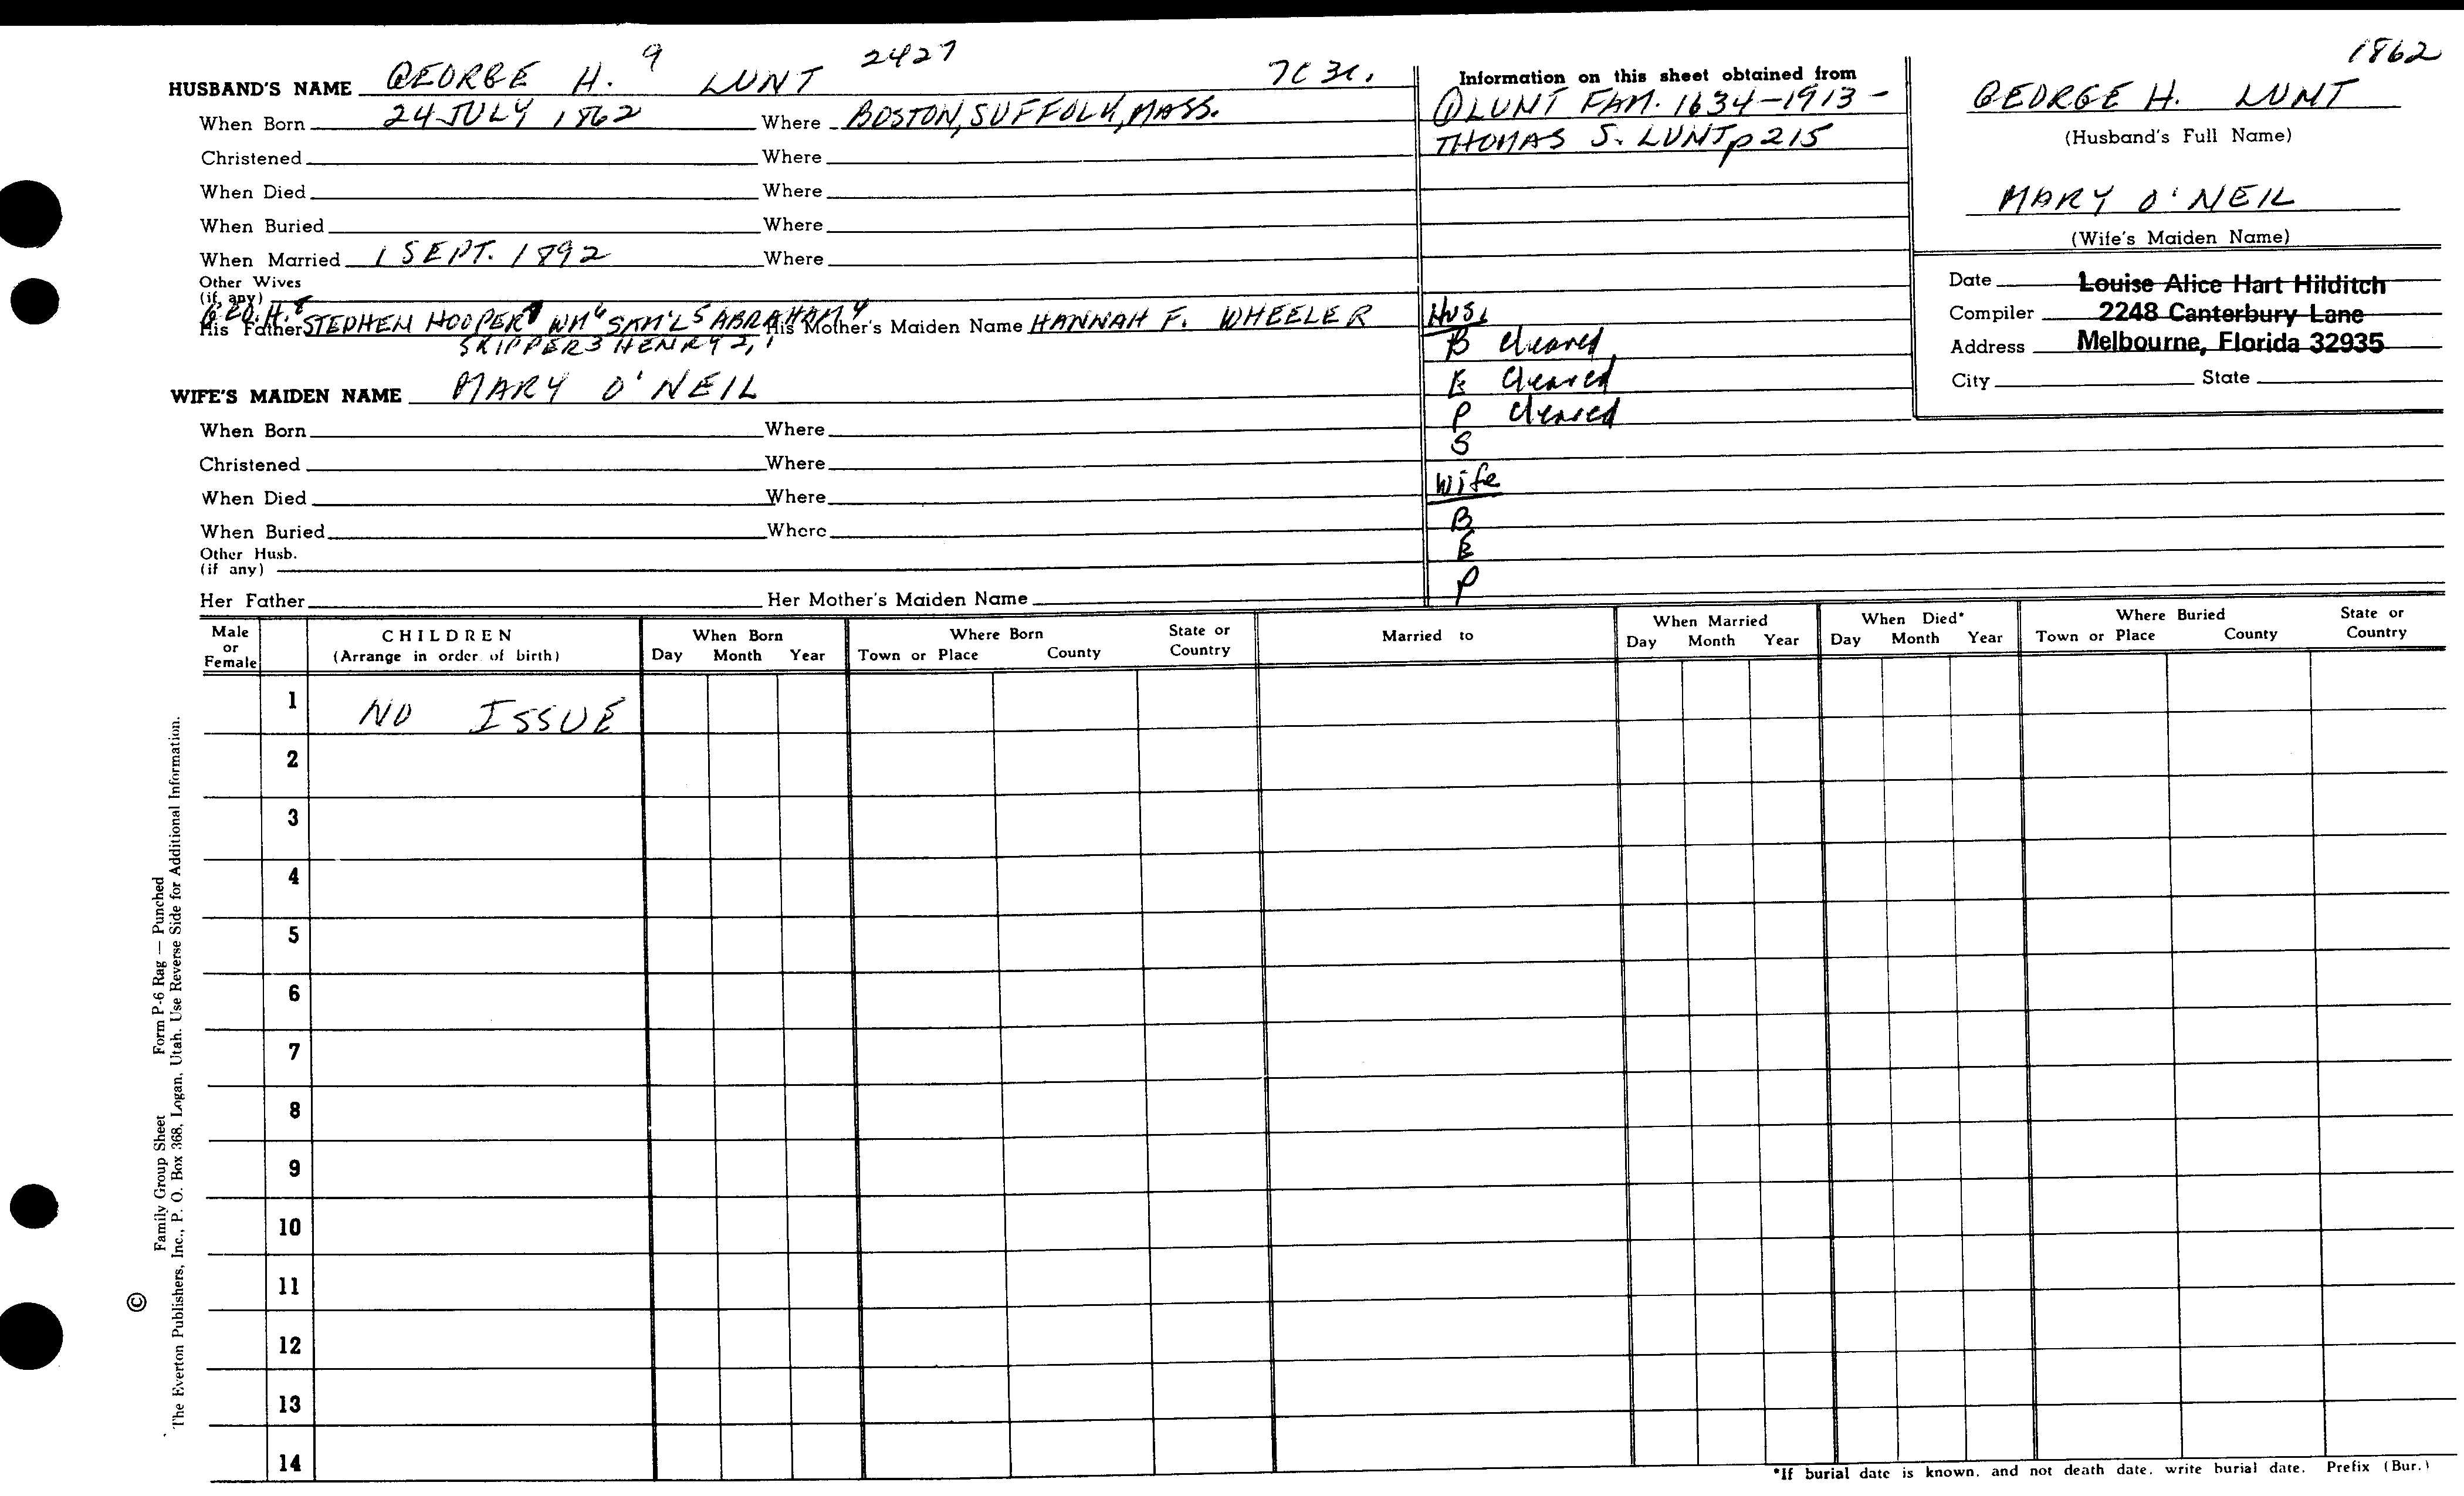 1862
HUSBAND'S NAME GEORGE H. 9 LUNT 2427 7C 3C.
When Born 24 JULY 1862 Where BOSTON, SUFFOLK, MASS.
Christened Where
When Died Where
When Buried Where
When Married 1 SEPT. 1892 Where
Other Wives
(if, any)
His Father GEO. H. 8 STEPHEN HOOPER 7 WM 6 SAM'L 5 ABRAHAM 4 His Mother's Maiden Name HANNAH F. WHEELER
SKIPPER 3 HENRY 2, 1
WIFE'S MAIDEN NAME MARY O'NEIL
When Born Where
Christened Where
When Died Where
When Buried Where
Other Husb.
(if any)
Her Father Her Mother's Maiden Name
Information on this sheet obtained from
LUNT FAM. 1634-1913-
THOMAS S. LUNT p 215
Hus.
B cleared
E cleared
P cleared
S
Wife
B
E
P
GEORGE H. LUNT
(Husband's Full Name)
MARY O'NEIL
(Wife's Maiden Name)
Date Louise Alice Hart Hilditch
Compiler 2248 Canterbury Lane
Address Melbourne, Florida 32935
City State
Male or Female
CHILDREN
(Arrange in order of birth)
When Born
Day Month Year
Where Born
Town or Place County State or Country
Married to
When Married
Day Month Year
When Died*
Day Month Year
Where Buried
Town or Place County State or Country
1 NO ISSUE
2
3
4
5
6
7
8
9
10
11
12
13
14
*If burial date is known, and not death date, write burial date. Prefix (Bur.)
Family Group Sheet Form P-6 Rag — Punched
© The Everton Publishers, Inc., P. O. Box 368, Logan, Utah. Use Reverse Side for Additional Information.